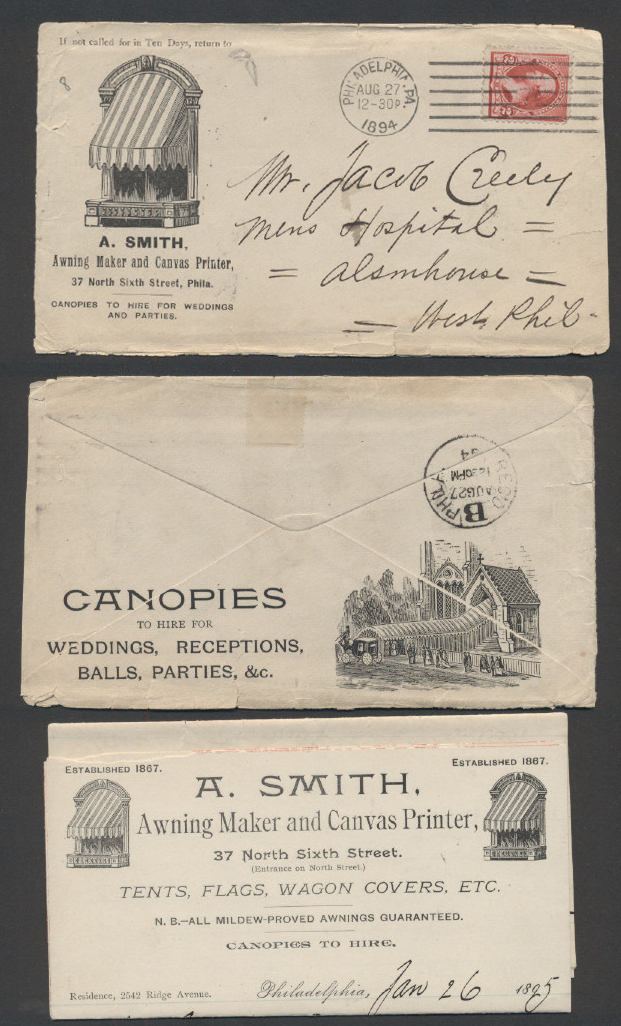 If not called for in Ten Days, return to
8
A. SMITH,
Awning Maker and Canvas Printer,
37 North Sixth Street, Phila.
CANOPIES TO HIRE FOR WEDDINGS
AND PARTIES.
PHILADELPHIA, PA.
AUG 27
12-30P
1894
Mr. Jacob Creely
Mens Hospital =
= Alsmhouse =
= West Phil-
REC'D
AUG 27
94
B
PHILA
CANOPIES
TO HIRE FOR
WEDDINGS, RECEPTIONS,
BALLS, PARTIES, &c.
ESTABLISHED 1867.
ESTABLISHED 1867.
A. SMITH,
Awning Maker and Canvas Printer,
37 North Sixth Street.
(Entrance on North Street.)
TENTS, FLAGS, WAGON COVERS, ETC.
N. B.—ALL MILDEW-PROVED AWNINGS GUARANTEED.
CANOPIES TO HIRE.
Residence, 2542 Ridge Avenue.
Philadelphia, Jan 26 1895